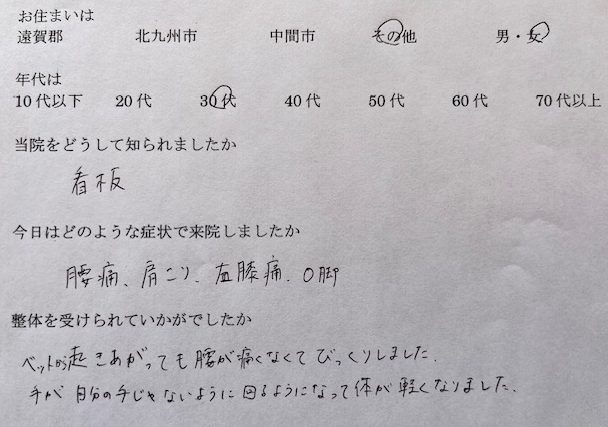 お住まいは
遠賀郡 北九州市 中間市 その他 男・女
年代は
10代以下 20代 30代 40代 50代 60代 70代以上
当院をどうして知られましたか
看板
今日はどのような症状で来院しましたか
腰痛、肩こり、左膝痛、O脚
整体を受けられていかがでしたか
ベットから起きあがっても腰が痛くなくてびっくりしました。
手が自分の手じゃないように回るようになって体が軽くなりました。